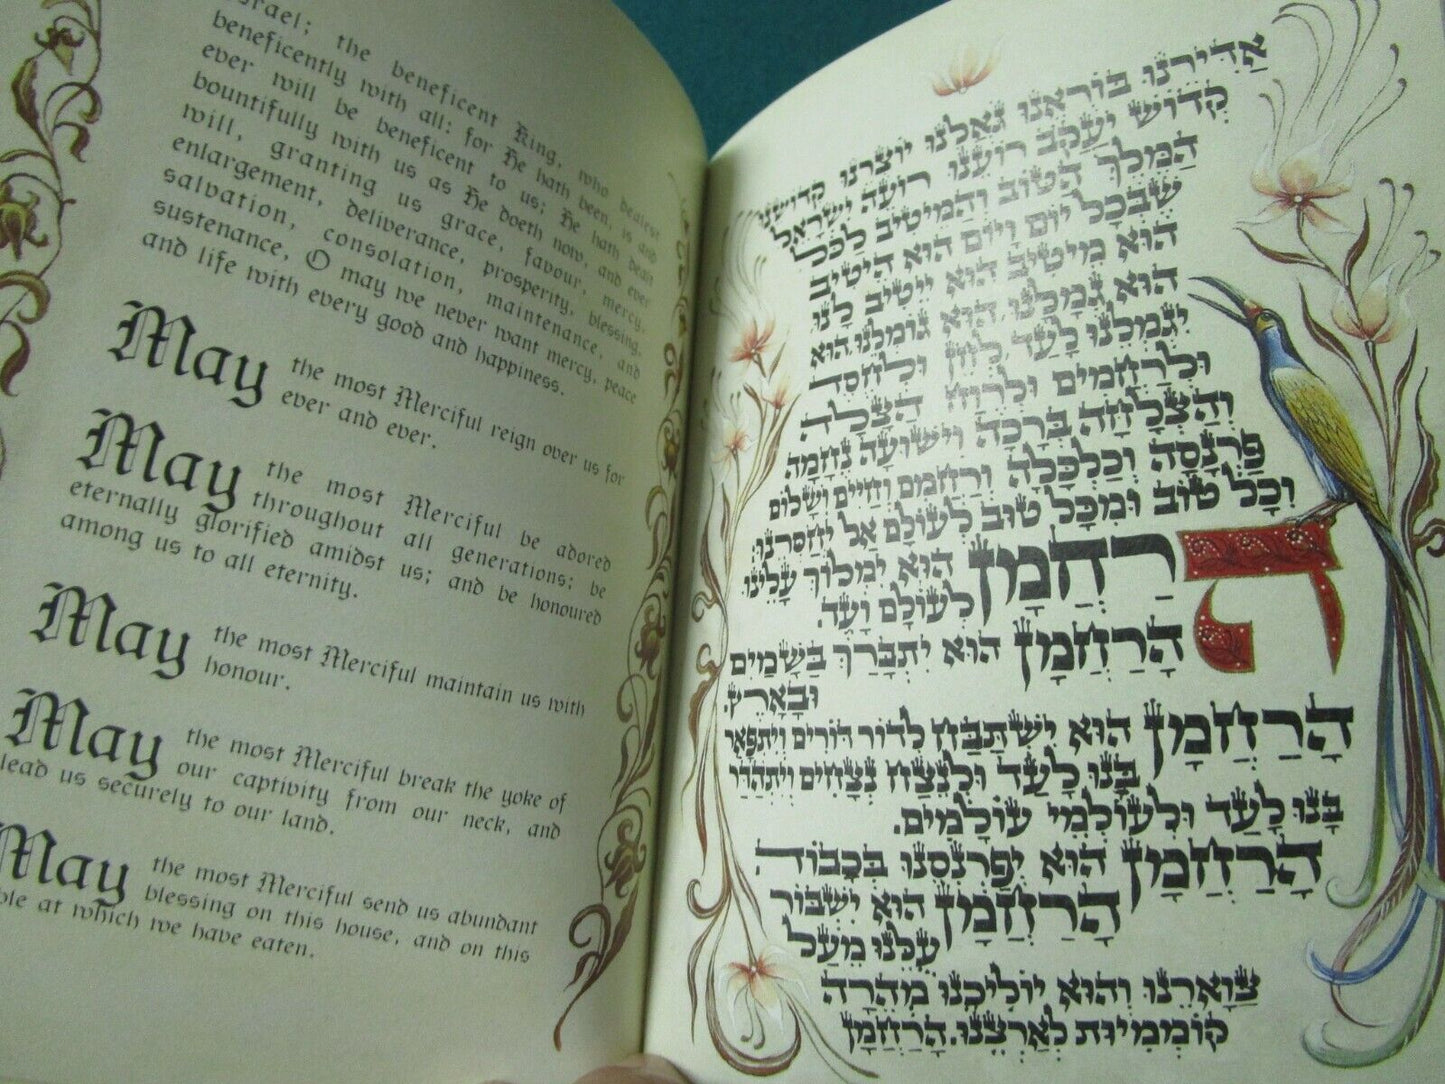 Israel; the beneficent King, who dealest
beneficently with all: for He hath been, is and
ever will be beneficent to us; He hath dealt
bountifully with us as He doeth now, and ever
will, granting us grace, favour, mercy,
enlargement, deliverance, prosperity, blessing,
salvation, consolation, maintenance, and
sustenance, O may we never want mercy, peace
and life with every good and happiness.
May the most Merciful reign over us for
ever and ever.
May the most Merciful be adored
throughout all generations; be
eternally glorified amidst us; and be honoured
among us to all eternity.
May the most Merciful maintain us with
honour.
May the most Merciful break the yoke of
our captivity from our neck, and
lead us securely to our land.
May the most Merciful send us abundant
blessing on this house, and on this
ble at which we have eaten.
אַדִּירֵנוּ בּוֹרְאֵנוּ גֹּאֲלֵנוּ יוֹצְרֵנוּ קְדוֹשֵׁנוּ
קְדוֹשׁ יַעֲקֹב רוֹעֵנוּ רוֹעֵה יִשְׂרָאֵל
הַמֶּלֶךְ הַטּוֹב וְהַמֵּיטִיב לַכֹּל
שֶׁבְּכָל יוֹם וָיוֹם הוּא הֵיטִיב
הוּא מֵיטִיב הוּא יֵיטִיב לָנוּ
הוּא גְמָלָנוּ הוּא גוֹמְלֵנוּ הוּא
יִגְמְלֵנוּ לָעַד לְחֵן וּלְחֶסֶד
וּלְרַחֲמִים וּלְרֶוַח הַצָּלָה
וְהַצְלָחָה בְּרָכָה וִישׁוּעָה נֶחָמָה
פַּרְנָסָה וְכַלְכָּלָה וְרַחֲמִים וְחַיִּים וְשָׁלוֹם
וְכָל טוֹב וּמִכָּל טוּב לְעוֹלָם אַל יְחַסְּרֵנוּ:
הָרַחֲמָן הוּא יִמְלוֹךְ עָלֵינוּ
לְעוֹלָם וָעֶד.
הָרַחֲמָן הוּא יִתְבָּרַךְ בַּשָּׁמַיִם
וּבָאָרֶץ.
הָרַחֲמָן הוּא יִשְׁתַּבַּח לְדוֹר דּוֹרִים וְיִתְפָּאַר
בָּנוּ לָעַד וּלְנֵצַח נְצָחִים וְיִתְהַדַּר
בָּנוּ לָעַד וּלְעוֹלְמֵי עוֹלָמִים.
הָרַחֲמָן הוּא יְפַרְנְסֵנוּ בְּכָבוֹד
הָרַחֲמָן הוּא יִשְׁבּוֹר
עֻלֵּנוּ מֵעַל
צַוָּארֵנוּ וְהוּא יוֹלִיכֵנוּ מְהֵרָה
קוֹמְמִיּוּת לְאַרְצֵנוּ. הָרַחֲמָן